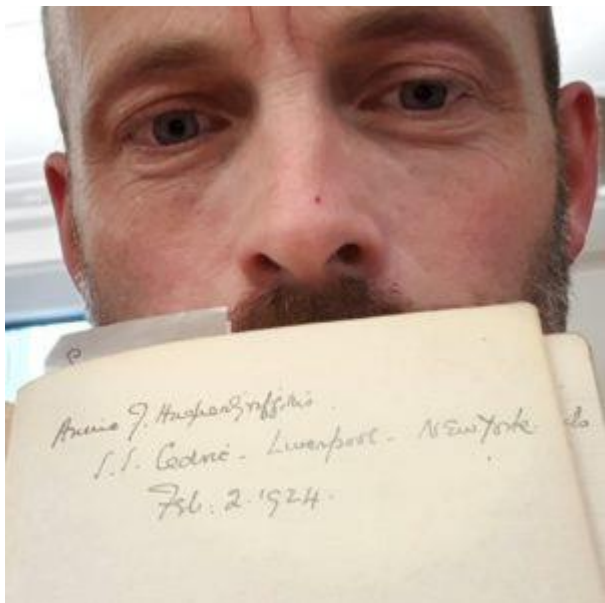 S
Annie J. Hughes Griffiths.
S.S. Cedric - Liverpool - New York
Feb. 2. 1924.